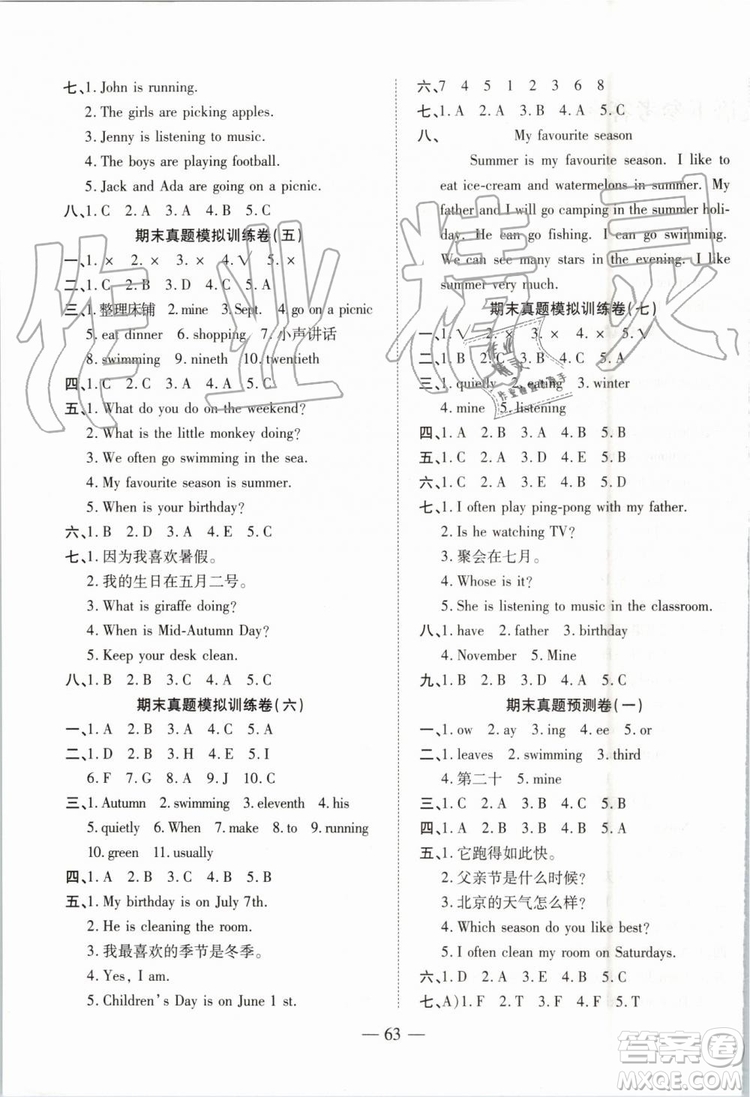 七、1. John is running.
2. The girls are picking apples.
3. Jenny is listening to music.
4. The boys are playing football.
5. Jack and Ada are going on a picnic.
八、1. C 2. A 3. A 4. B 5. C
期末真题模拟训练卷(五)
一、1. × 2. × 3. × 4. √ 5. ×
二、1. C 2. B 3. C 4. A 5. B
三、1. 整理床铺 2. mine 3. Sept. 4. go on a picnic
5. eat dinner 6. shopping 7. 小声讲话
8. swimming 9. nineth 10. twentieth
四、1. C 2. A 3. C 4. B 5. C
五、1. What do you do on the weekend?
2. What is the little monkey doing?
3. We often go swimming in the sea.
4. My favourite season is summer.
5. When is your birthday?
六、1. B 2. D 3. A 4. E 5. C
七、1. 因为我喜欢暑假。
2. 我的生日在五月二号。
3. What is giraffe doing?
4. When is Mid-Autumn Day?
5. Keep your desk clean.
八、1. C 2. A 3. A 4. B 5. C
期末真题模拟训练卷(六)
一、1. A 2. B 3. B 4. C 5. A
二、1. D 2. B 3. G 4. A 5. I
6. F 7. J 8. C 9. E 10. H
三、1. Autumn 2. swimming 3. eleventh 4. his
5. quietly 6. When 7. make 8. to 9. running
10. green 11. usually
四、1. C 2. A 3. A 4. B 5. B
五、1. My birthday is on July 7th.
2. He is cleaning the room.
3. 我最喜欢的季节是冬季。
4. Yes, I am.
5. Children's Day is on June 1 st.
六、7 4 5 1 2 3 6 8
七、1. A 2. B 3. A 4. B 5. C
八、 My favourite season
Summer is my favourite season. I like to
eat ice-cream and watermelons in summer. My
father and I will go camping in the summer holi-
day. We can go fishing. I can go swimming.
We can see many stars in the evening. I like
summer very much.
期末真题模拟训练卷(七)
一、1. √ 2. × 3. × 4. × 5. √
二、1. B 2. B 3. A 4. B 5. C
三、1. quietly 2. eating 3. winter
4. mine 5. listening
四、1. A 2. B 3. A 4. B 5. B
五、1. C 2. B 3. A 4. D 5. E
六、1. C 2. B 3. C 4. B 5. B
七、1. I often play ping-pong with my father.
2. Is he watching TV?
3. 聚会在七月。
4. Whose is it?
5. She is listening to music in the classroom.
八、1. have 2. father 3. birthday
4. November 5. Mine
九、1. C 2. B 3. A 4. B 5. C
期末真题预测卷(一)
一、1. ow 2. ay 3. ing 4. ee 5. or
二、1. leaves 2. swimming 3. third
4. 第二十 5. mine
三、1. A 2. C 3. B 4. A 5. C
四、1. A 2. B 3. B 4. C 5. A
五、1. 它跑得如此快。
2. 父亲节是什么时候?
3. 北京的天气怎么样?
4. Which season do you like best?
5. I often clean my room on Saturdays.
六、1. D 2. C 3. A 4. E 5. B
七、A) 1. F 2. T 3. T 4. T 5. F
— 63 —
作业精灵
答案圈
MXQE.COM